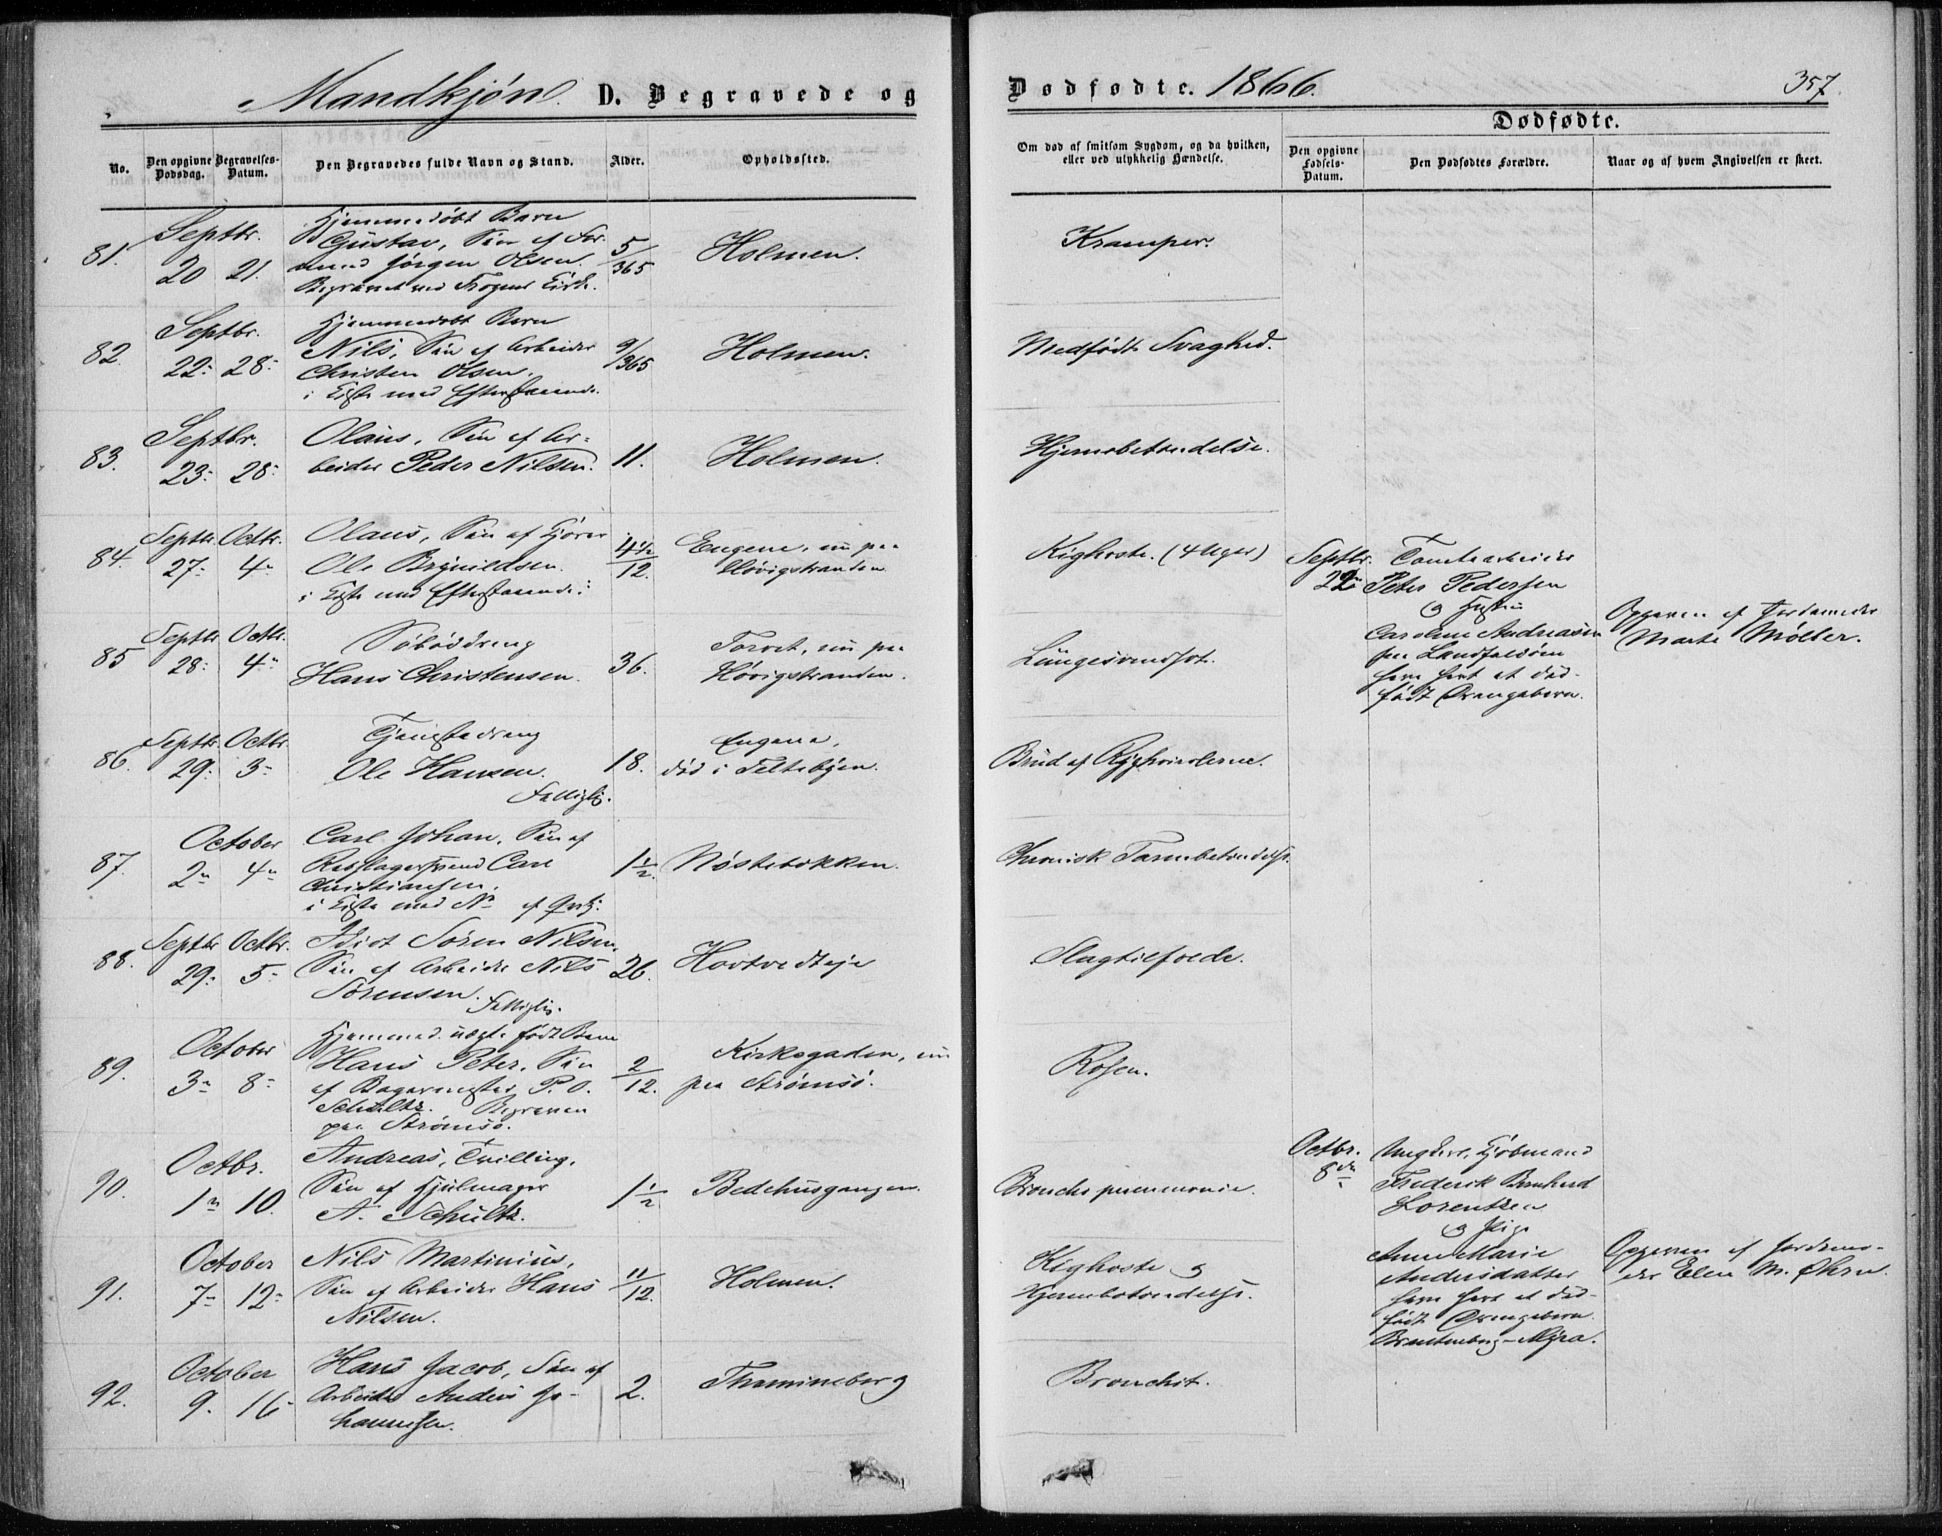 Mandkjøn. D. Begravede og
No.
Den opgivne Dødsdag.
Begravelses-Datum.
Den Begravedes fulde Navn og Stand.
Alder.
Opholdssted.
81.
Septbr.
20 21.
Hjemmedøbt Barn
Gustav, Søn af For-
mand Jørgen Olsen.
Begravet ved Kirke.
5/365
Holmen.
82.
Septbr.
22 28
Hjemmedøbt Barn
Nils, Søn af Arbeider
Christen Olsen.
i Kiste med Efterstaaende.
9/365
Holmen.
83.
Septbr.
23 28
Olaus, Søn af Ar-
beider Peder Nilsen.
11.
Holmen.
84.
Septbr. Octbr.
27 4
Olaus, Søn af Kjører
Ole Brynildsen.
i Kiste med Efterstaaende.
4½/12.
Engene, nu paa
Høvigstranden
85
Septbr. Octbr.
28 4
Hans Christensen.
36.
Torvet, nu paa
Høvigstranden.
86.
Septbr. Octbr.
29 3
Tjenestedreng
Ole Hansen.
Fattiglig.
18.
Engene,
død i Feltebyen.
87.
October
2 4
Carl Johan, Søn af
Carl
Christiansen.
i Kiste med No af
1½.
Nøstebakken.
88.
Septbr. Octbr.
29 5
Idiot Søren Nilsen,
Søn af Arbeider Nils
Sørensen.
Fattiglig.
26.
89.
October
3 8
Hjemmed. uægte født Barn
Hans Peter, Søn
af Bagermester P. O.
Schultz. Begraven
paa Strømsø.
2/12.
Kirkegaden, nu
paa Strømsø.
90.
Octbr.
1 10.
Andreas, Tvilling,
Søn af Hjulmager
A. Schultz.
1½.
Bedehusgangen.
91.
October
7 12
Nils Martinius,
Søn af Arbeider Hans
Nilsen.
11/12.
Holmen.
92.
October
9. 16
Hans Jacob, Søn af
Arbeider Anders Jo-
hannesen.
2.
Thamineberg
Dødfødte. 1866. 357.
Om død af smitsom Sygdom, og da hvilken, eller ved ulykkelig Hændelse.
Dødfødte.
Den opgivne Fødsels-Datum.
Den Dødfødtes Forældre.
Naar og af hvem Angivelsen er skeet.
Kramper.
Medfødt Svaghed.
Hjernebetændelse.
Kighoste. (4 Uger)
Septbr.
22
Tomtearbeider
Peter Pedersen
og Hustru
Caroline Andreasen
paa Landfaldøen
have havt et død-
født Drengebarn.
Opgiven af Jordemoder
Marte Møller.
Lungesvindsot.
Brud af Ryghvirvlerne.
Chronisk Tarmbetændelse.
Slagtilfælde.
Rosen.
Bronchopneumonie.
Octbr.
8de
Ungkarl, Kjøbmand
Frederik Bernhard
Lorentzen
og Pige
Anne Marie
Andersdatter
have havt et død-
født Drengebarn.
Opgiven af Jordemo-
der Elen M. Øhrn.
Kighoste og
Hjernebetændelse.
Bronchit.